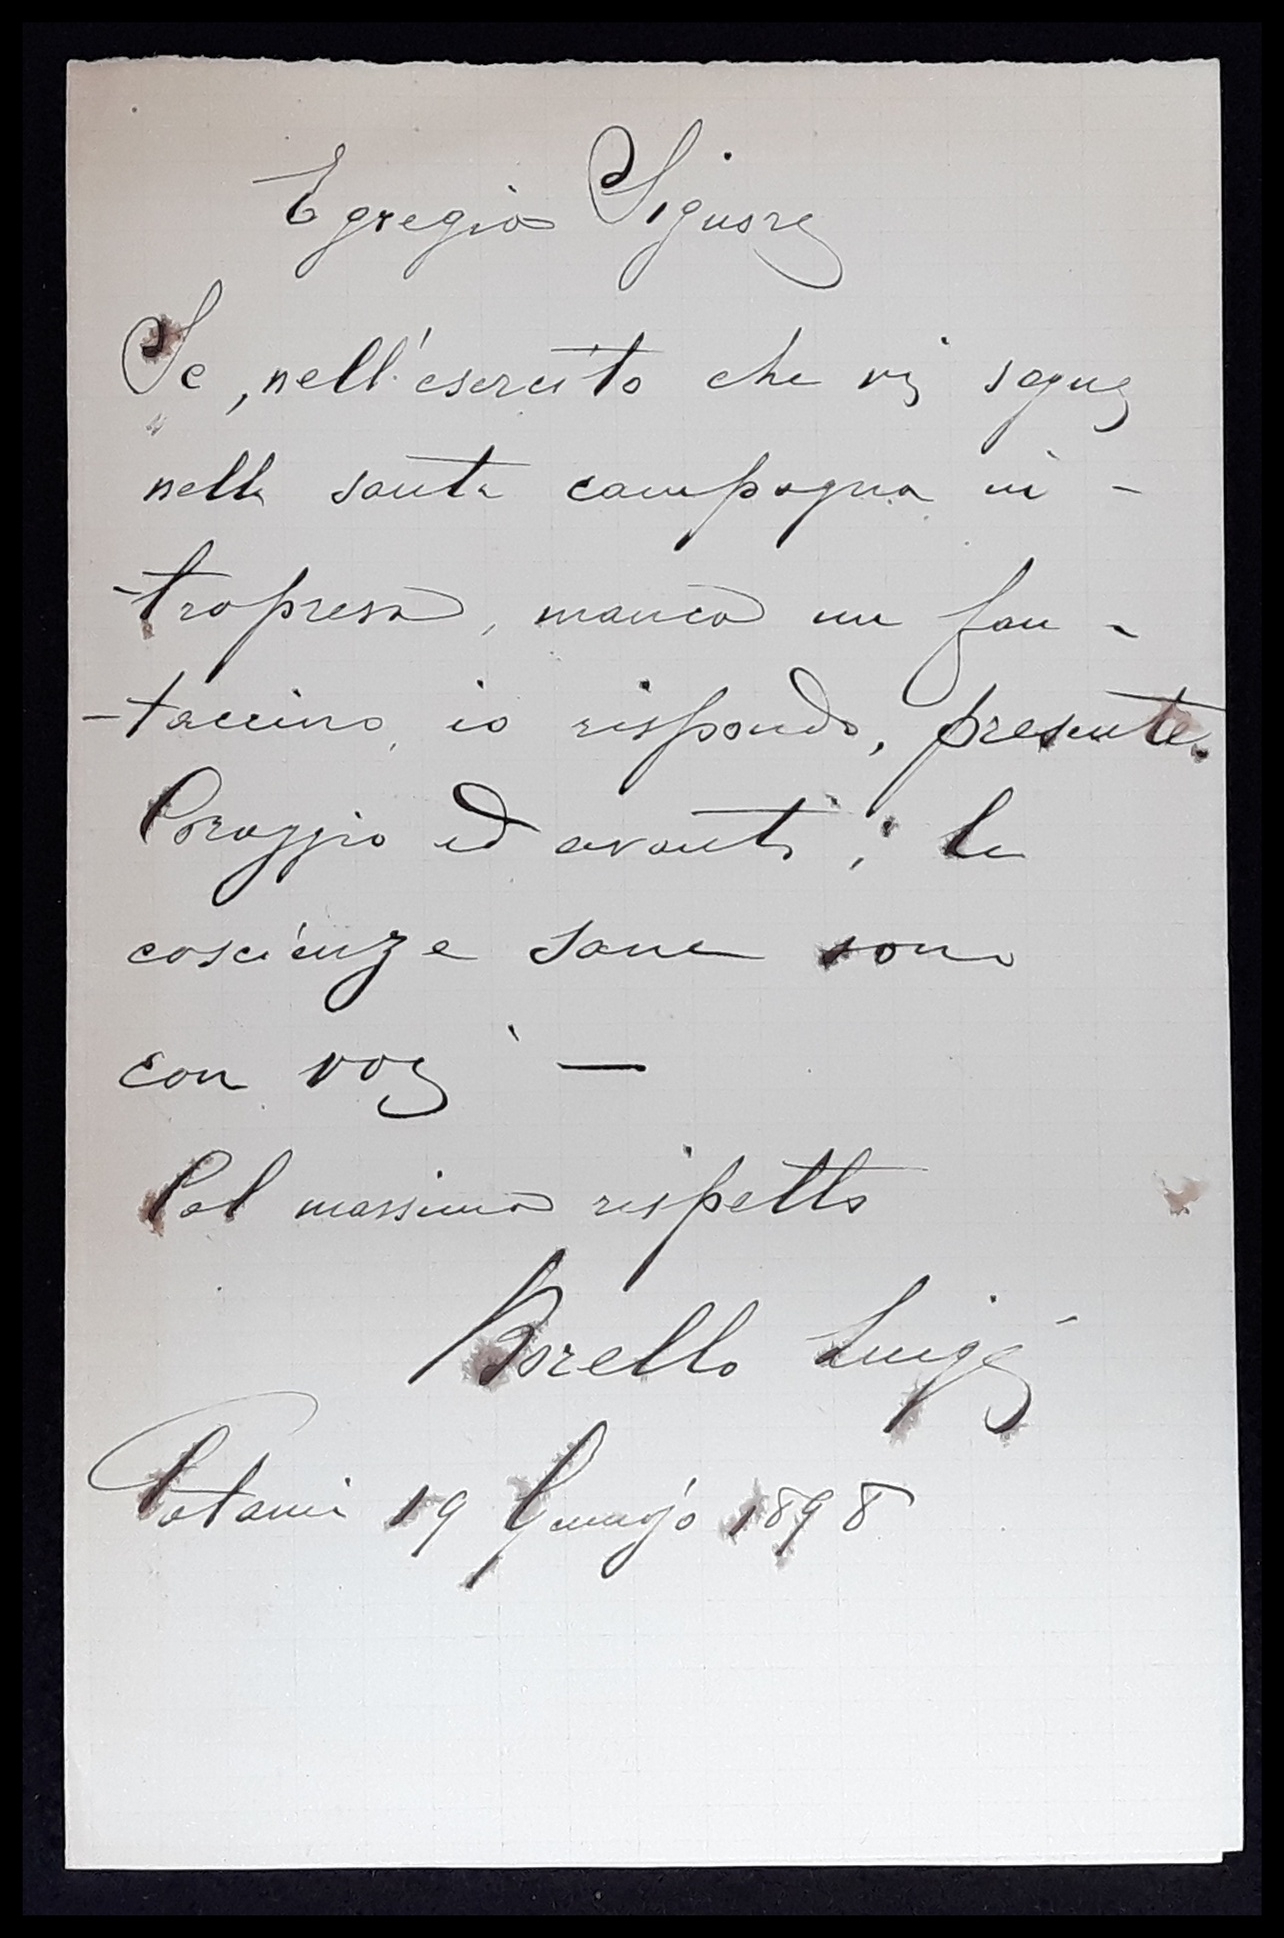 Egregio Signore
Se, nell'esercito che vi segue
nella santa campagna in-
-trapresa, manca un fan-
-taccino, io rispondo, presente.
Coraggio ed avanti; le
coscienze sane sono
con voi —
Col massimo rispetto
Borello Luigi
Catania 19 Gennajo 1898